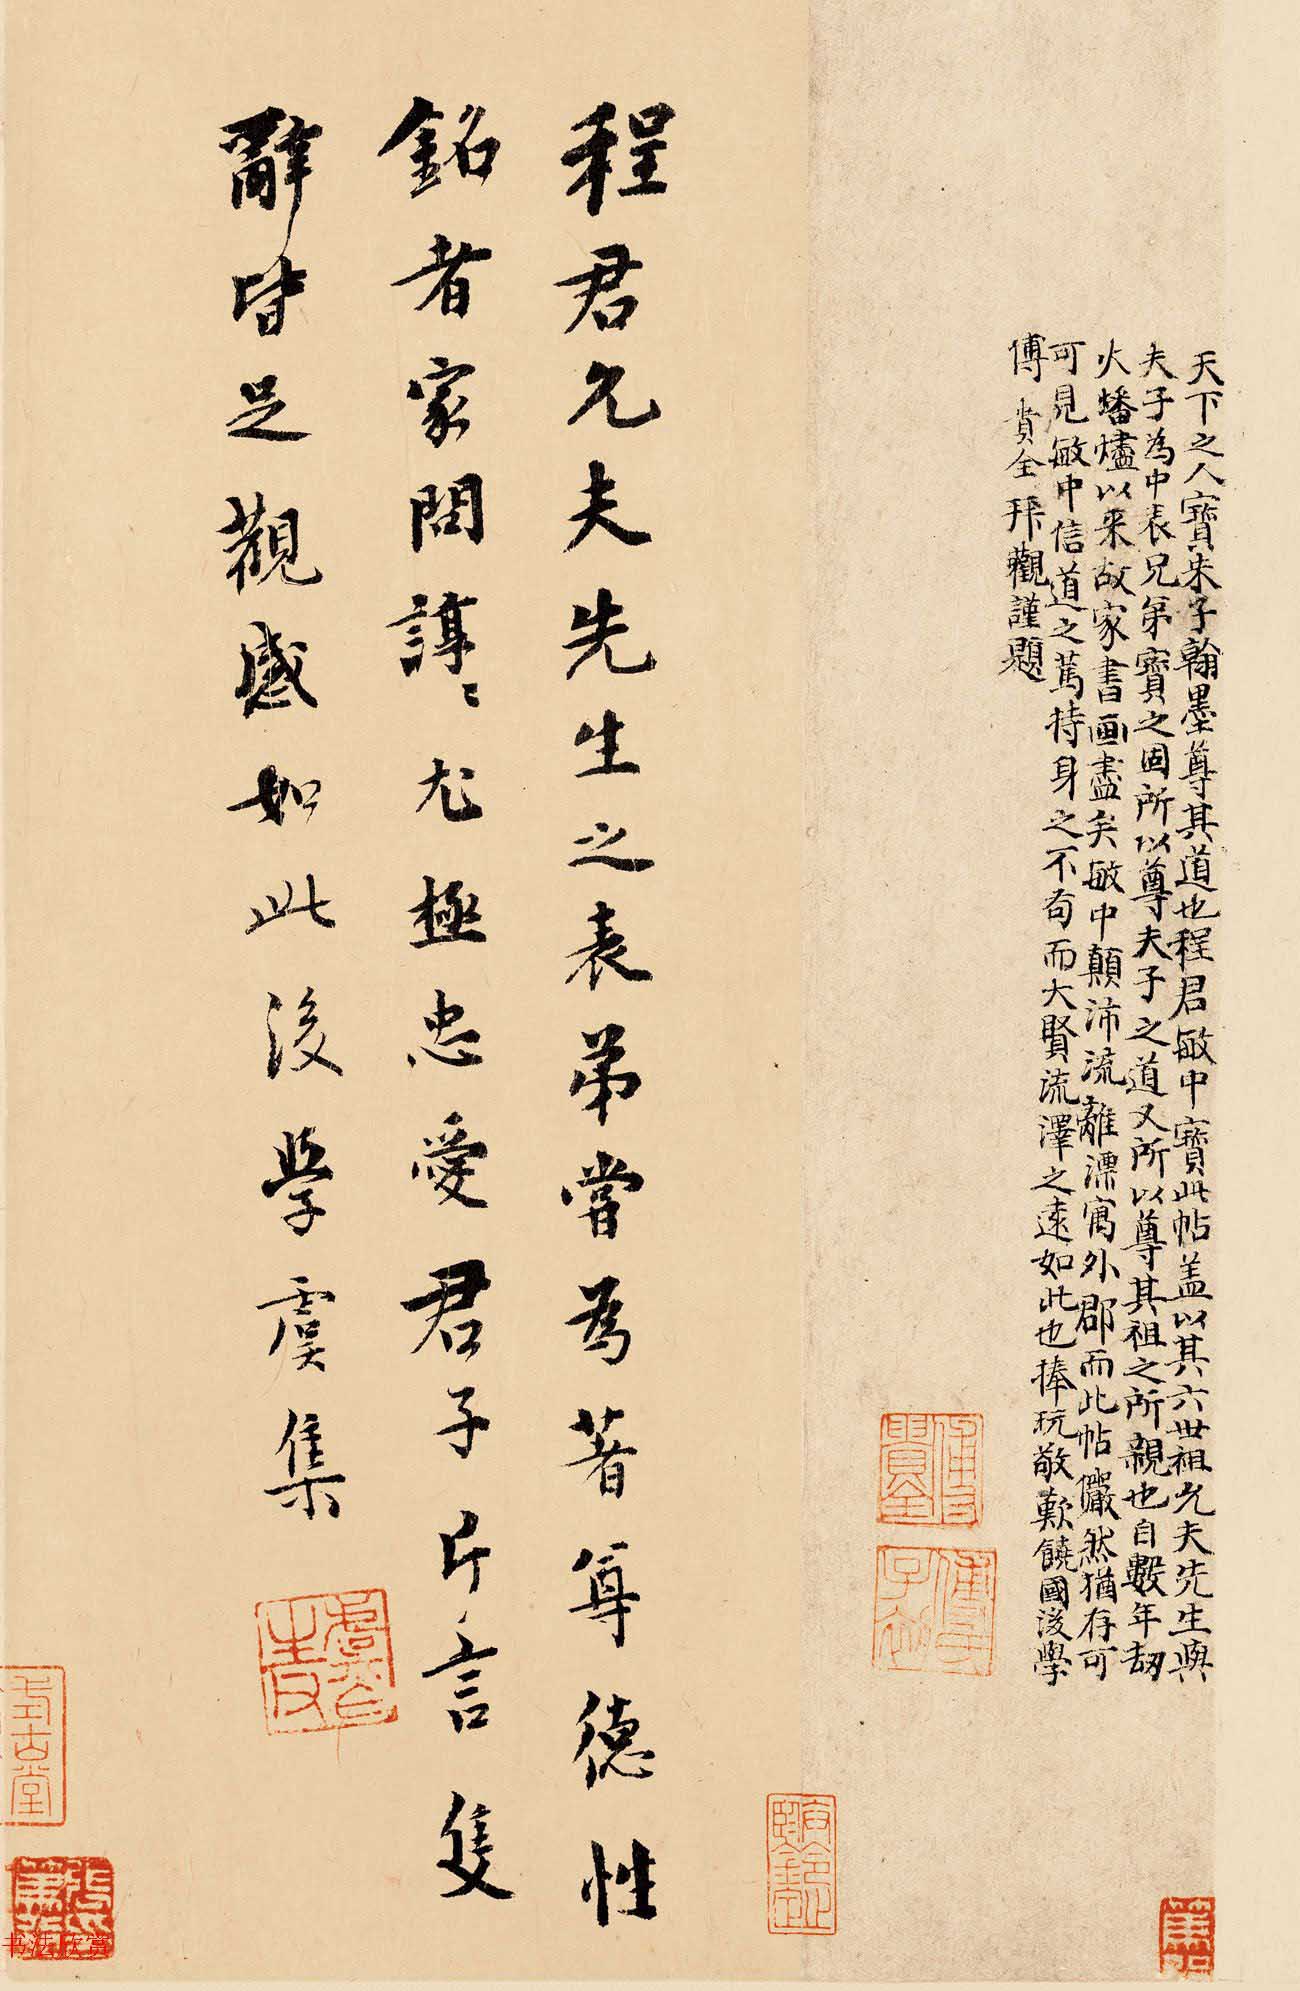 天下之人寶朱子翰墨尊其道也程君敏中寶此帖盖以其六世祖允夫先生與
夫子為中表兄弟寶之固所以尊夫子之道又所以尊其祖之所親也自數年刼
火燔燼以来故家書画盡矣敏中顛沛流離漂寓外郡而此帖儼然猶存可
可見敏中信道之篤持身之不苟而大賢流澤之遠如此也捧玩敬歎饒國後學
傅貴全拜觀謹題
程君允夫先生之表弟嘗為著尊德性
銘者家問諄〻尤極忠愛君子片言隻
辭皆足觀感如此後學虞集
書法欣賞